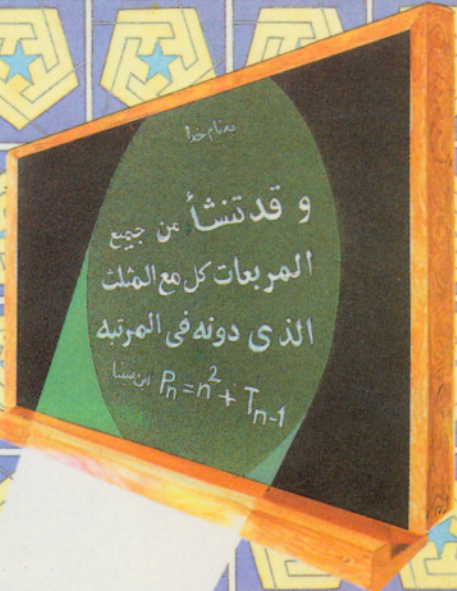 بنام خدا
و قد تنشأ من جميع
المربعات كل مع المثلث
الذى دونه فى المرتبه
ابن سينا Pₙ=n²+Tₙ₋₁